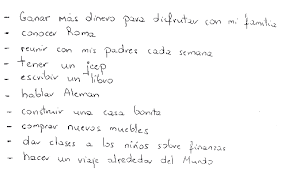 - Ganar más dinero para disfrutar con mi familia
- conocer Roma
- reunir con mis padres cada semana
- tener un jeep
- escribir un libro
- hablar Aleman
- construir una casa bonita
- comprar nuevos muebles
- dar clases a los niños sobre finanzas
- hacer un viaje alrededor del Mundo